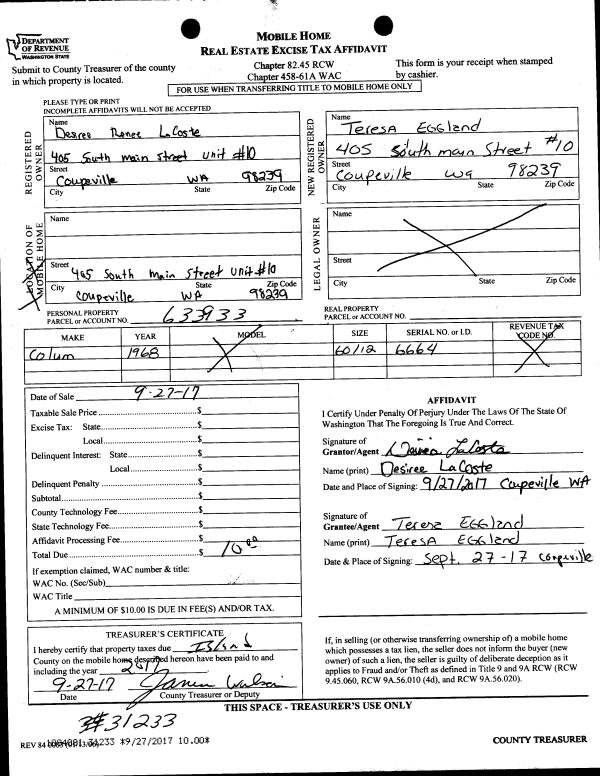 DEPARTMENT
OF REVENUE
WASHINGTON STATE
MOBILE HOME
REAL ESTATE EXCISE TAX AFFIDAVIT
Submit to County Treasurer of the county
in which property is located.
Chapter 82.45 RCW
Chapter 458-61A WAC
This form is your receipt when stamped
by cashier.
FOR USE WHEN TRANSFERRING TITLE TO MOBILE HOME ONLY
PLEASE TYPE OR PRINT
INCOMPLETE AFFIDAVITS WILL NOT BE ACCEPTED
REGISTERED
OWNER
Name
Desiree Renee LaCoste
405 South main street unit #10
Street
Coupeville WA 98239
City State Zip Code
NEW REGISTERED
OWNER
Name
Teresa Eggland
405 South main Street #10
Street
Coupeville Wa 98239
City State Zip Code
LOCATION OF
MOBILE HOME
Name
Street
405 South Main Street Unit #10
City State Zip Code
Coupeville WA 98239
LEGAL OWNER
Name
Street
City State Zip Code
PERSONAL PROPERTY
PARCEL or ACCOUNT NO. 633933
REAL PROPERTY
PARCEL or ACCOUNT NO.
MAKE YEAR MODEL SIZE SERIAL NO. or I.D. REVENUE TAX CODE NO.
Colum 1968 60/12 6664
Date of Sale 9-27-17
Taxable Sale Price $
Excise Tax: State $
Local $
Delinquent Interest: State $
Local $
Delinquent Penalty $
Subtotal $
County Technology Fee $
State Technology Fee $
Affidavit Processing Fee $
Total Due $ 10.00
If exemption claimed, WAC number & title:
WAC No. (Sec/Sub)
WAC Title
A MINIMUM OF $10.00 IS DUE IN FEE(S) AND/OR TAX.
AFFIDAVIT
I Certify Under Penalty Of Perjury Under The Laws Of The State Of
Washington That The Foregoing Is True And Correct.
Signature of
Grantor/Agent Desiree LaCoste
Name (print) Desiree LaCoste
Date and Place of Signing: 9/27/2017 Coupeville WA
Signature of
Grantee/Agent Teresa Eggland
Name (print) Teresa Eggland
Date & Place of Signing: Sept. 27-17 Coupeville
TREASURER'S CERTIFICATE
I hereby certify that property taxes due Island
County on the mobile home described hereon have been paid to and
including the year 2017
9-27-17
Date County Treasurer or Deputy
If, in selling (or otherwise transferring ownership of) a mobile home
which possesses a tax lien, the seller does not inform the buyer (new
owner) of such a lien, the seller is guilty of deliberate deception as it
applies to Fraud and/or Theft as defined in Title 9 and 9A RCW (RCW
9.45.060, RCW 9A.56.010 (4d), and RCW 9A.56.020).
THIS SPACE - TREASURER'S USE ONLY
#31233
REV 84 31233 *9/27/2017 10.00*
COUNTY TREASURER